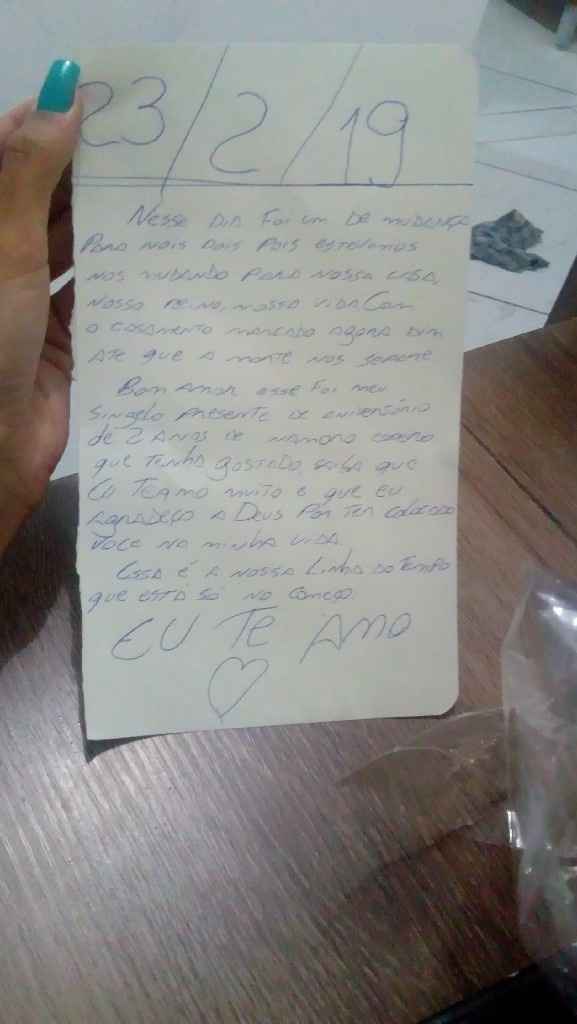 23/2/19
Nesse dia foi um de mudança
Para nois dois pois estavamos
nos mudando para nossa casa,
nosso reino, nossa vida Com
o casamento marcado agora
ate que a morte nos separe
Bom amor esse foi meu
Singelo presente de aniversário
de 2 anos de namoro espero
que tenha gostado, saiba que
Eu Te amo muito e que eu
agradeço a Deus por ter colocado
voce na minha vida
Essa é a nossa Linha do Tempo
que está só no começo
EU TE AMO